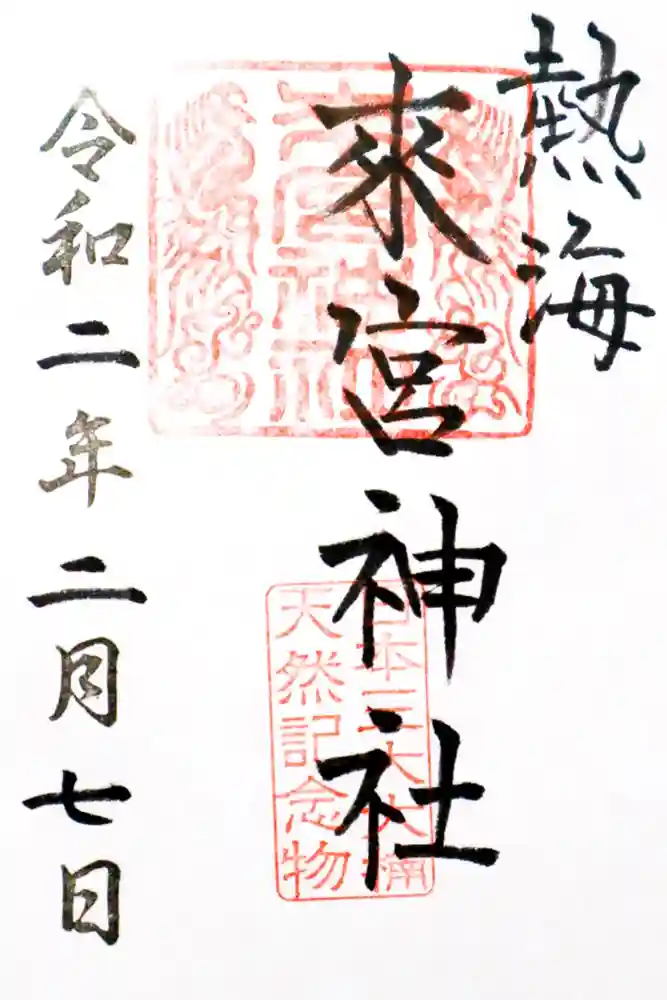 熱海
來宮神社
日本三大大楠
天然記念物
令和二年二月七日